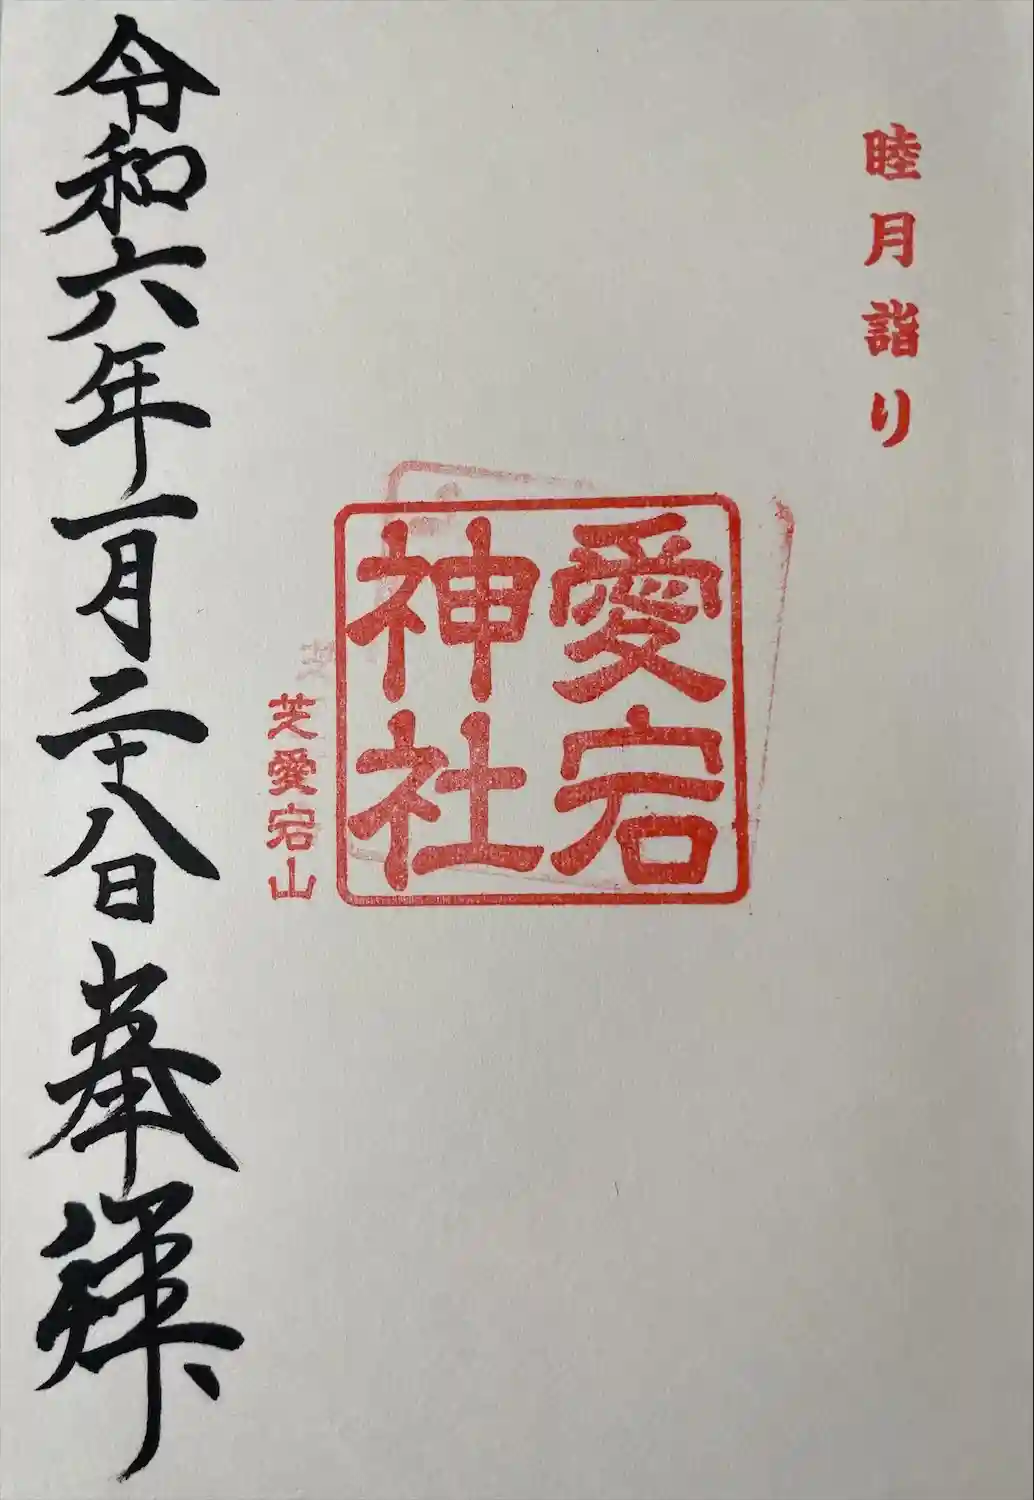 睦月詣り
愛宕
神社
芝愛宕山
令和六年一月二十八日奉拝